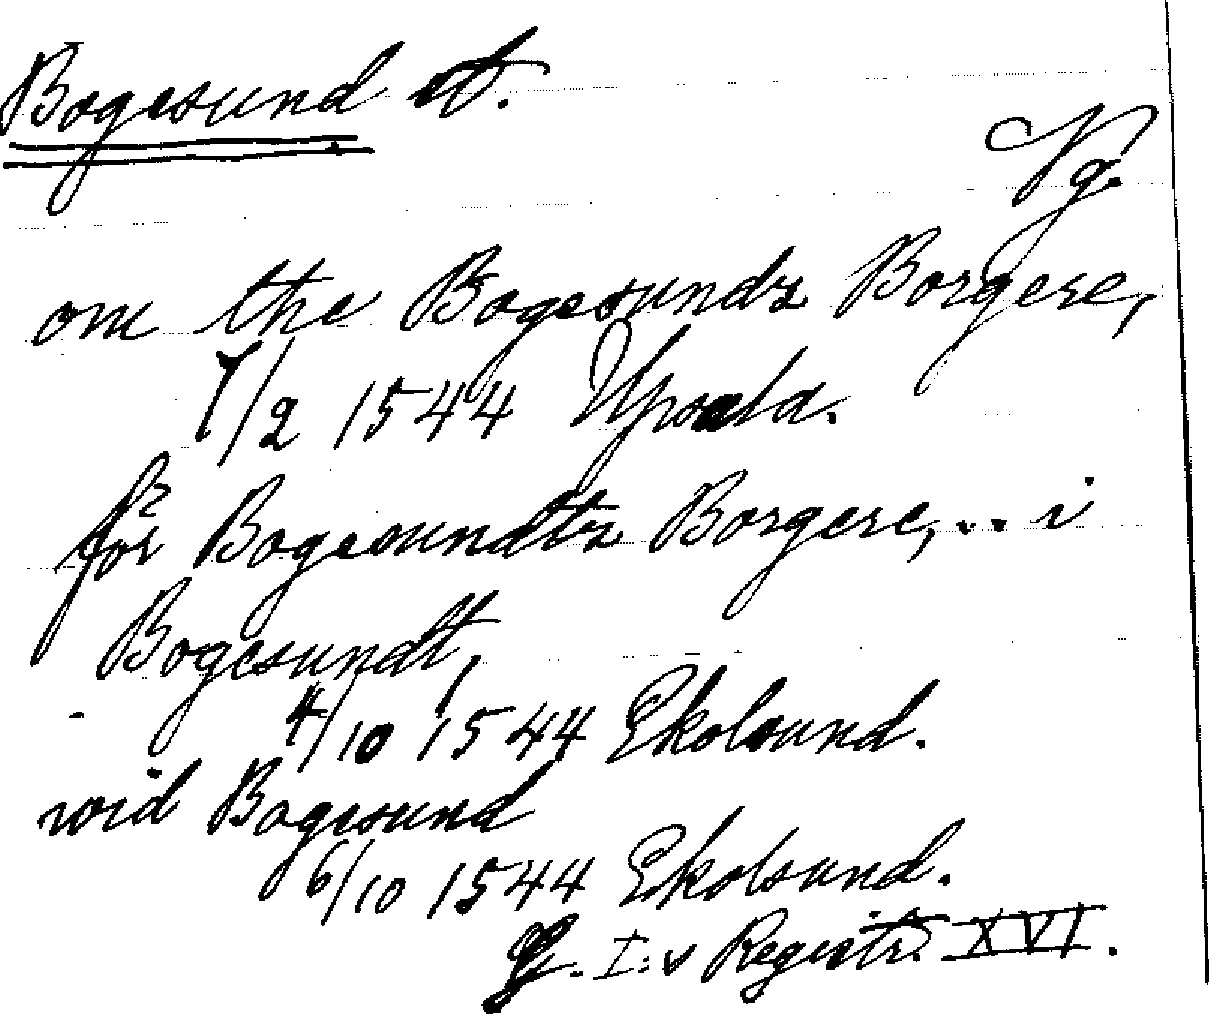 Bogesund st.
Vg.
om the Bogesundz Borgere,
7/2 1544 Upsala.
för Bogesundtz Borgere, ... i
Bogesundt,
4/10 1544 Ekolsund.
wid Bogesund
6/10 1544 Ekolsund.
G. I:s Registr. XVI.